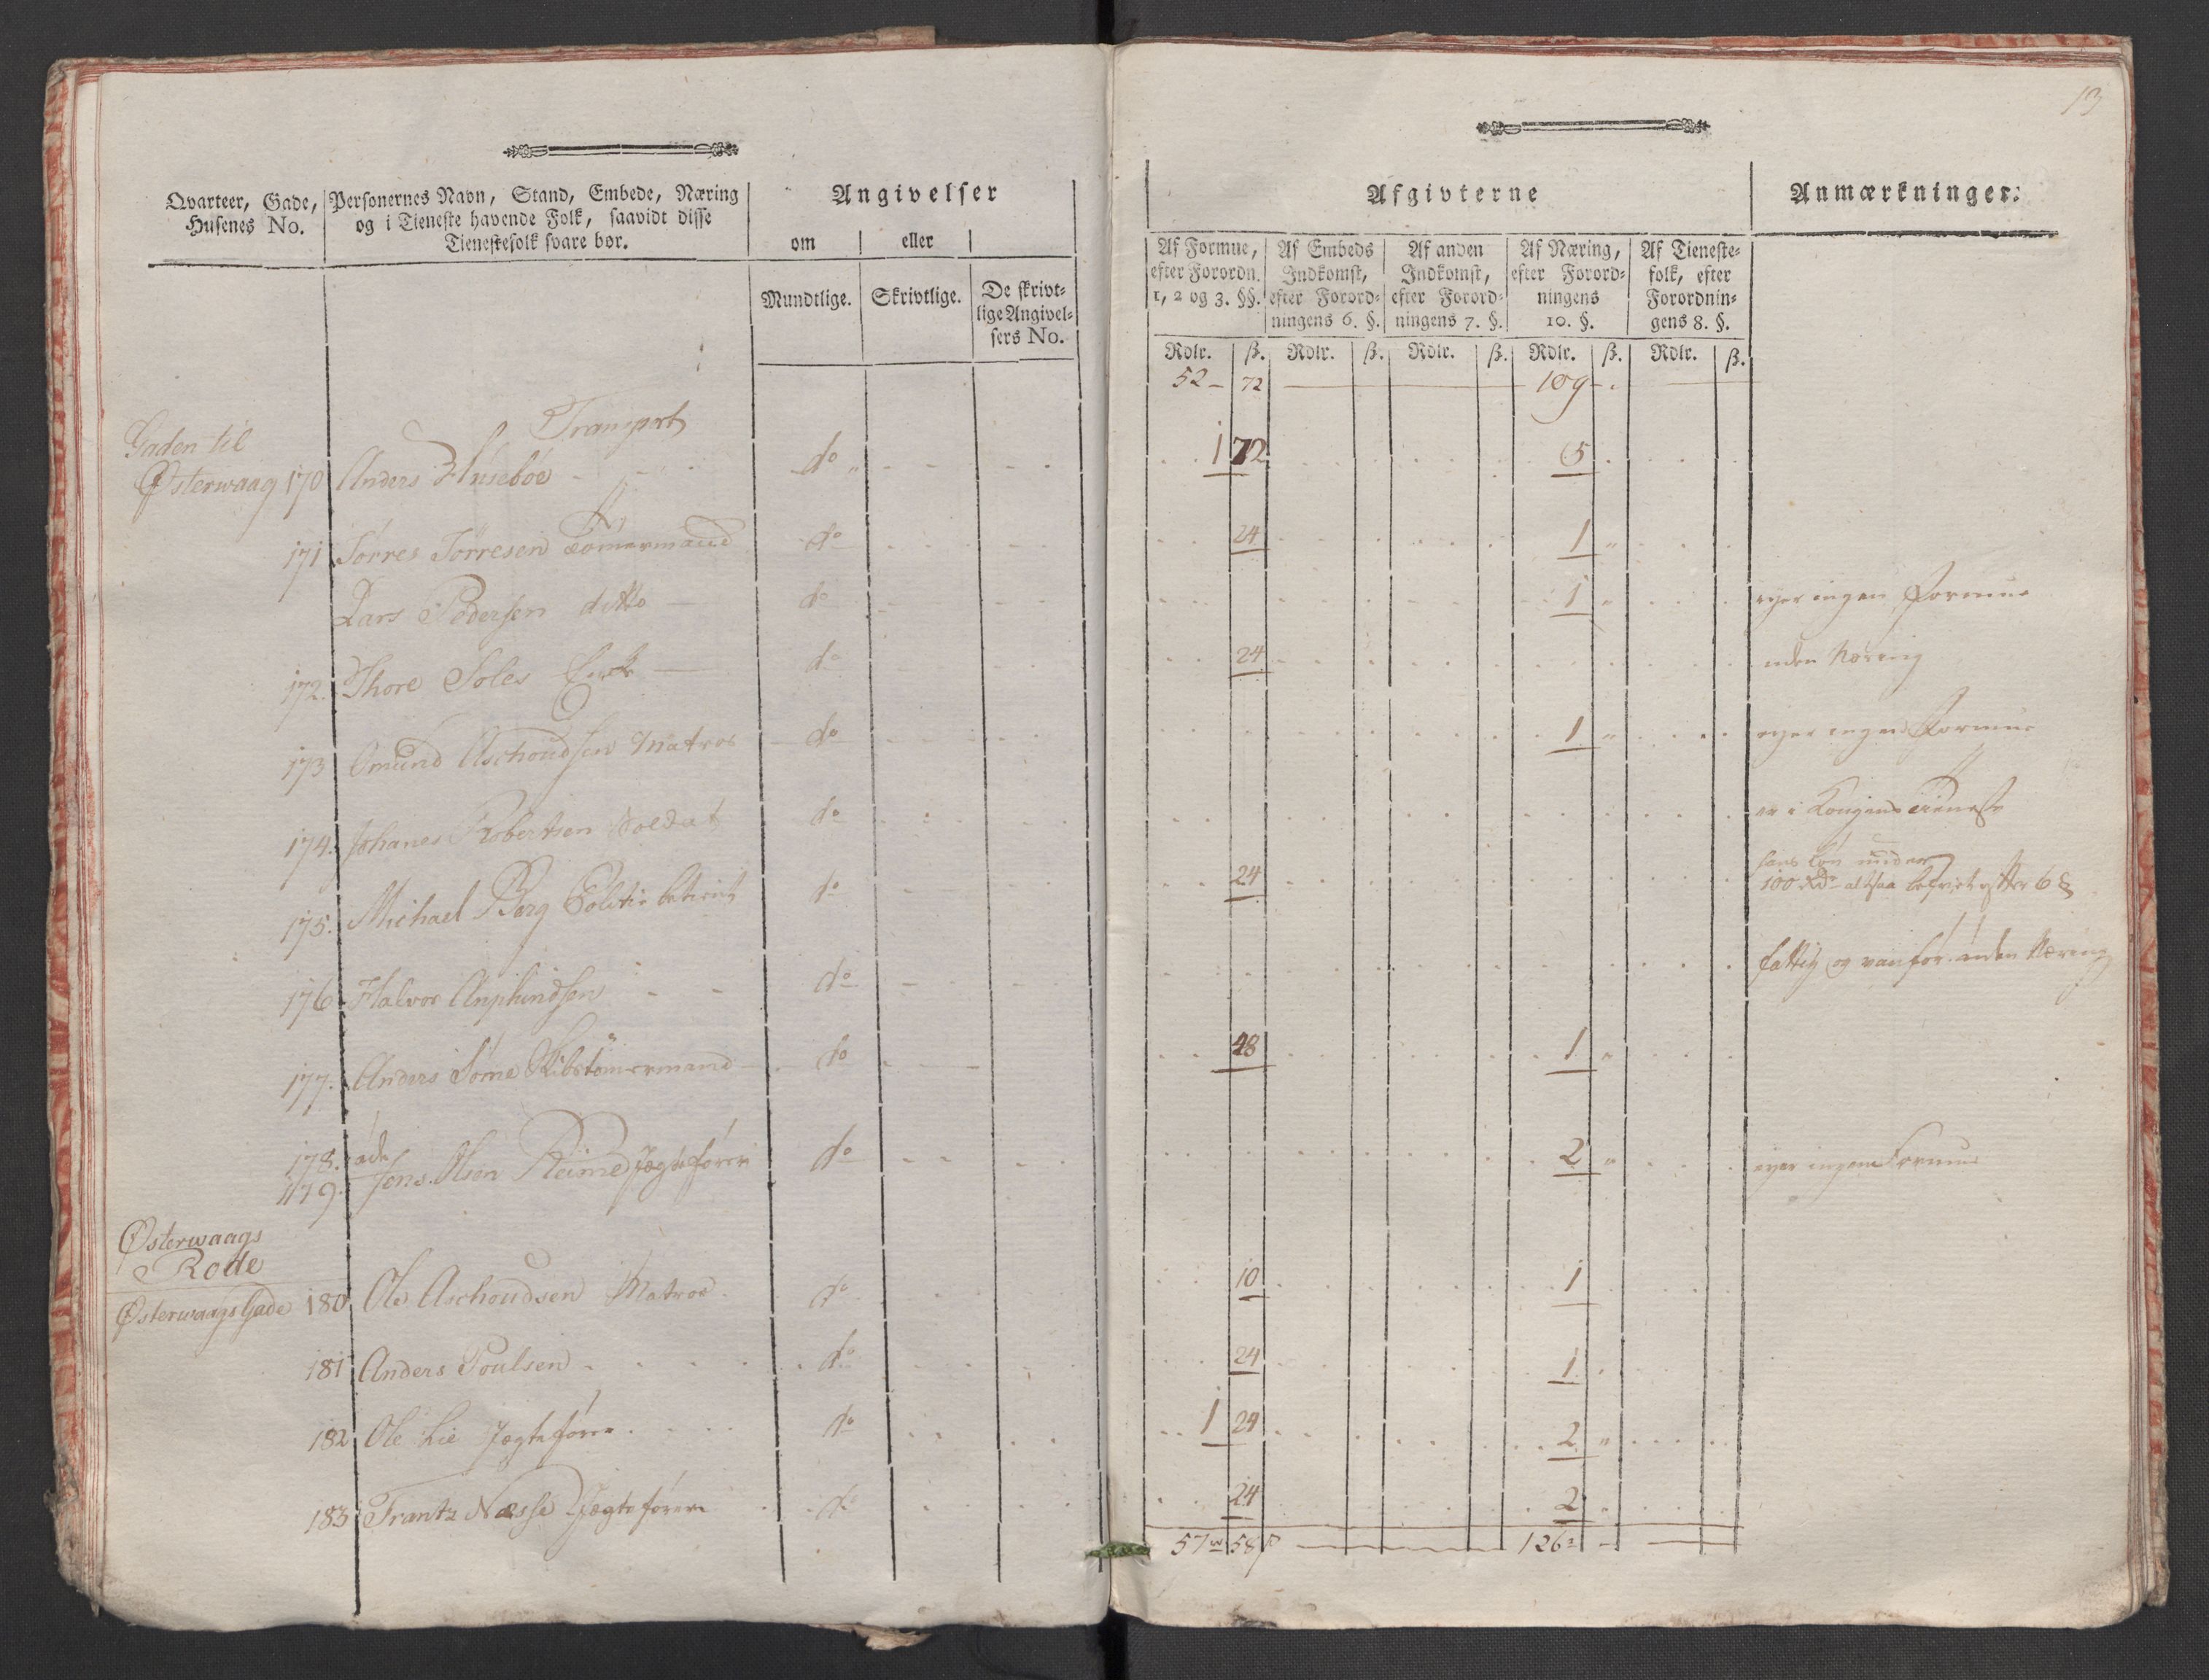 13
Qvarteer, Gade,
Husenes No.
Personernes Navn, Stand, Embede, Næring
og i Tieneste havende Folk, saavidt disse
Tienestefolk svare bør.
Angivelser
om eller
Mundtlige. Skrivtlige. De skrivt-
lige Angivel-
sers No.
Afgivterne
Anmærkninger.
Af Formue,
efter Forordn.
1, 2 og 3. §§.
Af Embeds
Indkomst,
efter Forord-
ningens 6. §.
Af anden
Indkomst,
efter Forord-
ningens 7. §.
Af Næring,
efter Forord-
ningens
10. §.
Af Tieneste-
folk, efter
Forordnin-
gens 8. §.
Rdlr. ß. Rdlr. ß. Rdlr. ß. Rdlr. ß. Rdlr. ß.
Transport 52 72 109
Gaden til
Østerwaag 170 Anders Huseboe do 1 72 5
171 Torres Torresen Tømermand do 24 1
Lars Pedersen ditto do 1 eyer ingen Formue
172. Thore Soles Enke do 24 uden Næring
173 Omund Aschoudsen Matros do 1 eyer ingen Formue
174. Johanes Robertsen Soldat do er i Kongens Tieneste
175. Michael Berg Politie betient do 24 hans Løn under
100 Rdr altsaa befriet efter 6 §
176 Halvor do fattig og vanfør uden Næring
177. Anders Some Skibstømermand do 48 1
178. øde
179. Jens Olsen Reime Jægtefører do 2 eyer ingen Formue
Østerwaags
Rode
Østerwaags Gade 180 Ole Aschoudsen Matros do 10 1
181 Anders Poulsen do 24 1
182 Ole Lie Jægtefører do 1 24 2
183 Frantz Næsse Jægtefører do 24 2
57 58 ß 126